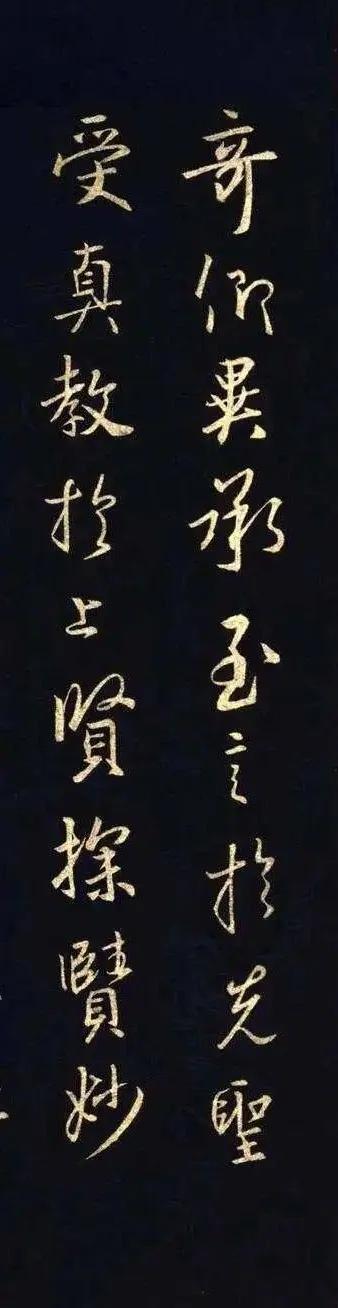 奇仰異承至言於先聖
受真教於上賢探賾妙